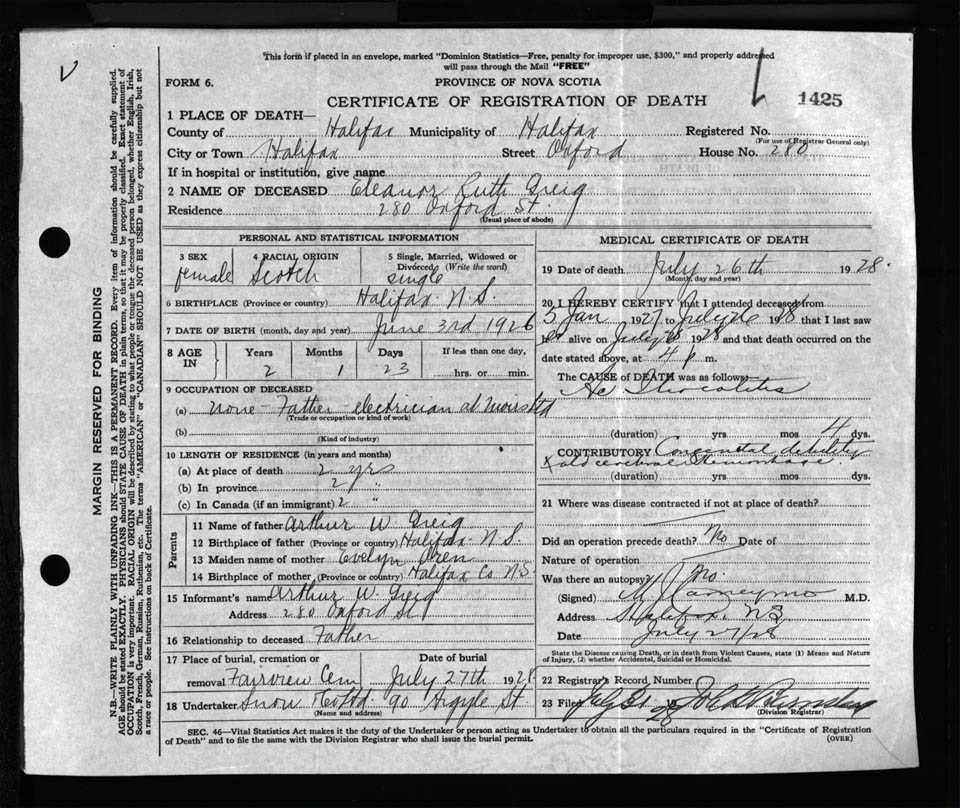 This form if placed in an envelope, marked "Dominion Statistics—Free, penalty for improper use, $300," and properly addressed
will pass through the Mail "FREE"
FORM 6.
PROVINCE OF NOVA SCOTIA
CERTIFICATE OF REGISTRATION OF DEATH
1425
1 PLACE OF DEATH—
County of Halifax Municipality of Halifax Registered No.
(For use of Registrar General only)
City or Town Halifax Street Oxford House No. 280
If in hospital or institution, give name
2 NAME OF DECEASED Eleanor Ruth Greig
Residence 280 Oxford St.
(Usual place of abode)
PERSONAL AND STATISTICAL INFORMATION
3 SEX 4 RACIAL ORIGIN 5 Single, Married, Widowed or
Divorced (Write the word)
female Scotch single
6 BIRTHPLACE (Province or country) Halifax N.S.
7 DATE OF BIRTH (month, day and year) June 3rd 1926
8 AGE IN Years Months Days If less than one day,
2 1 23 hrs. or min.
9 OCCUPATION OF DECEASED
(a) none - Father electrician at Moirs Ltd
(Trade or occupation or kind of work)
(b)
(Kind of industry)
10 LENGTH OF RESIDENCE (in years and months)
(a) At place of death 2 yrs
(b) In province 2 "
(c) In Canada (if an immigrant) 2 "
Parents
11 Name of father Arthur W. Greig
12 Birthplace of father (Province or country) Halifax N.S.
13 Maiden name of mother Evelyn
14 Birthplace of mother (Province or country) Halifax Co N.S
15 Informant's name Arthur W. Greig
Address 280 Oxford St
16 Relationship to deceased Father
17 Place of burial, cremation or Date of burial
removal Fairview Cem July 27th 1928
18 Undertaker Snow & Co Ltd 90 Argyle St.
(Name and address)
MEDICAL CERTIFICATE OF DEATH
19 Date of death July 26th 1928.
(Month, day and year)
20 I HEREBY CERTIFY that I attended deceased from
5 Jan 1927 to July 26 1928 that I last saw
her alive on July 28 and that death occurred on the
date stated above, at 4 p m.
The CAUSE of DEATH was as follows:
Ac
(duration) yrs mos 4 dys.
CONTRIBUTORY Congenital debility
& old cerebral Hemorrhage
(duration) yrs mos dys.
21 Where was disease contracted if not at place of death?
Did an operation precede death? No Date of
Nature of operation
Was there an autopsy? No.
(Signed) M.D.
Address Halifax, N.S.
Date July 27/28
State the Disease causing Death, or in death from Violent Causes, state (1) Means and Nature
of Injury, (2) whether Accidental, Suicidal or Homicidal.
22 Registrar's Record Number
23 Filed July 28
(Division Registrar)
SEC. 46—Vital Statistics Act makes it the duty of the Undertaker or person acting as Undertaker to obtain all the particulars required in the "Certificate of Registration
of Death" and to file the same with the Division Registrar who shall issue the burial permit. (OVER)
MARGIN RESERVED FOR BINDING
N.B.—WRITE PLAINLY WITH UNFADING INK—THIS IS A PERMANENT RECORD. Every item of information should be carefully supplied.
AGE should be stated EXACTLY. PHYSICIANS should STATE CAUSE OF DEATH in plain terms, so that it may be properly classified. Exact statement of
OCCUPATION is very important. RACIAL ORIGIN will be described by stating to what people or tongue the deceased person belonged, whether English, Irish,
Scotch, French, German, Russian, Ruthenian, etc. The terms "AMERICAN" or "CANADIAN" SHOULD NOT BE USED as they express citizenship but not
a race or people. See instructions on back of Certificate.